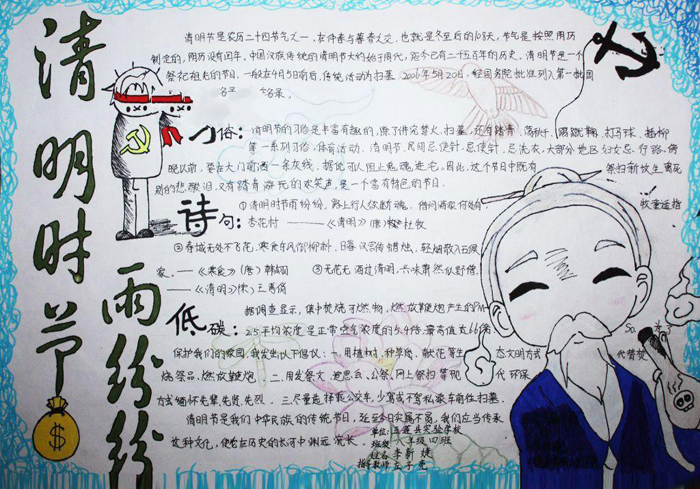 清明时节
雨纷纷
清明节是农历二十四节气之一，在仲春与暮春之交，也就是冬至后的108天，节气是按照阳历
制定的，阳历没有闰年，中国汉族传统的清明节大约始于周代，距今已有二千五百年的历史，清明节是一个
祭祀祖先的节日，一般在4月5日前后，传统活动为扫墓 2006年5月20日，经国务院批准列入第一批国
名录
习俗：清明节的习俗是丰富有趣的，除了讲究禁火、扫墓，还有踏青、荡秋千、踢蹴鞠、打马球、插柳
等一系列习俗体育活动。清明节，民间忌使针，忌洗衣，大部分地区妇女忌行路。傍
晚以前，要在大门前洒一条灰线，据说可以阻止鬼魂进宅，因此，这个节日中既有祭扫新坟生离死
别的悲酸泪，又有踏青游玩的欢笑声，是一个富有特色的节日。
诗句：①清明时节雨纷纷，路上行人欲断魂。借问酒家何处有，牧童遥指
杏花村 ——《清明》唐 杜牧
②春城无处不飞花，寒食东风御柳斜。日暮汉宫传蜡烛，轻烟散入五侯
家。——《寒食》（唐）韩翃 ③无花无酒过清明，兴味萧然似野僧。
——《清明》（宋）王禹偁
低碳：据调查显示，集中焚烧可燃物，燃放鞭炮产生的PM
2.5平均浓度是正常空气浓度的5.4倍，最高值
保护我们的家园，我发出以下倡议：一、用植树、种草、献花等生态文明方式代替焚
烧祭品、燃放鞭炮 二、用发祭文、抱思丘、公祭、网上祭扫等现代环保
方式缅怀先辈、先贤、先烈。三、尽量选择乘公交车，少驾或不驾私家车前往扫墓。
清明节是我们中华民族的传统节日，延至今日实属不易，我们应当传承
这种文化，使它在历史的长河中渊远流长。
单位：五莲县实验学校
班级：一年级四班
姓名：李新婕
指导教师
$